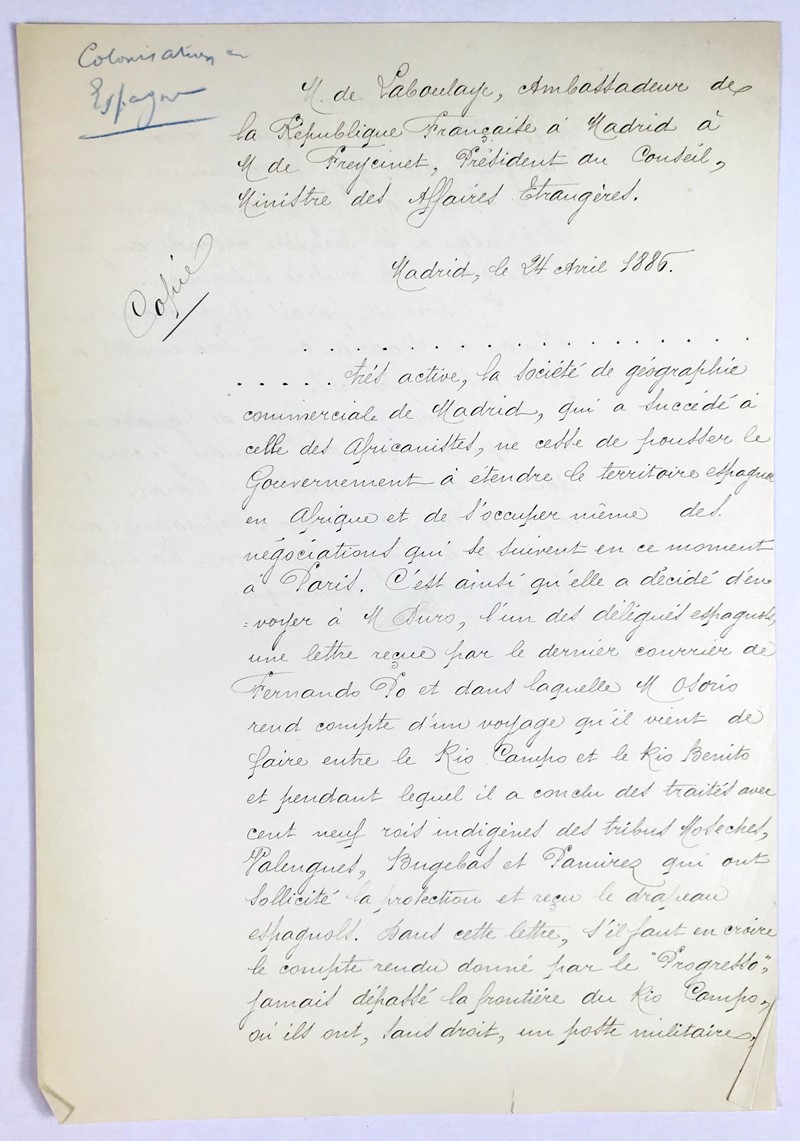 Colonisation
Espagne
M. de Laboulaye, Ambassadeur de
la République Française à Madrid à
M de Freycinet, Président du Conseil,
Ministre des Affaires Etrangères.
Madrid, le 24 Avril 1886.
Copie
. . . . . . . . . . . . . . . . . .
. . . . . très active, la société de géographie
commerciale de Madrid, qui a succédé à
celle des Africanistes, ne cesse de pousser le
Gouvernement à étendre le territoire espagnol
en Afrique et de s'occuper même des
négociations qui se suivent en ce moment
à Paris. C'est ainsi qu'elle a décidé d'en
=voyer à M Duro, l'un des délégués espagnols,
une lettre reçue par le dernier courrier de
Fernando Po et dans laquelle M Osorio
rend compte d'un voyage qu'il vient de
faire entre le Rio Campo et le Rio Benito
et pendant lequel il a conclu des traités avec
cent neuf rois indigènes des tribus Moseches,
Valengues, Bugebas et Pamirez qui ont
sollicité la protection et reçu le drapeau
espagnols. Dans cette lettre, s'il faut en croire
le compte rendu donné par le "Progresso",
jamais dépassé la frontière du Rio Campo,
où ils ont, sans droit, un poste militaire,